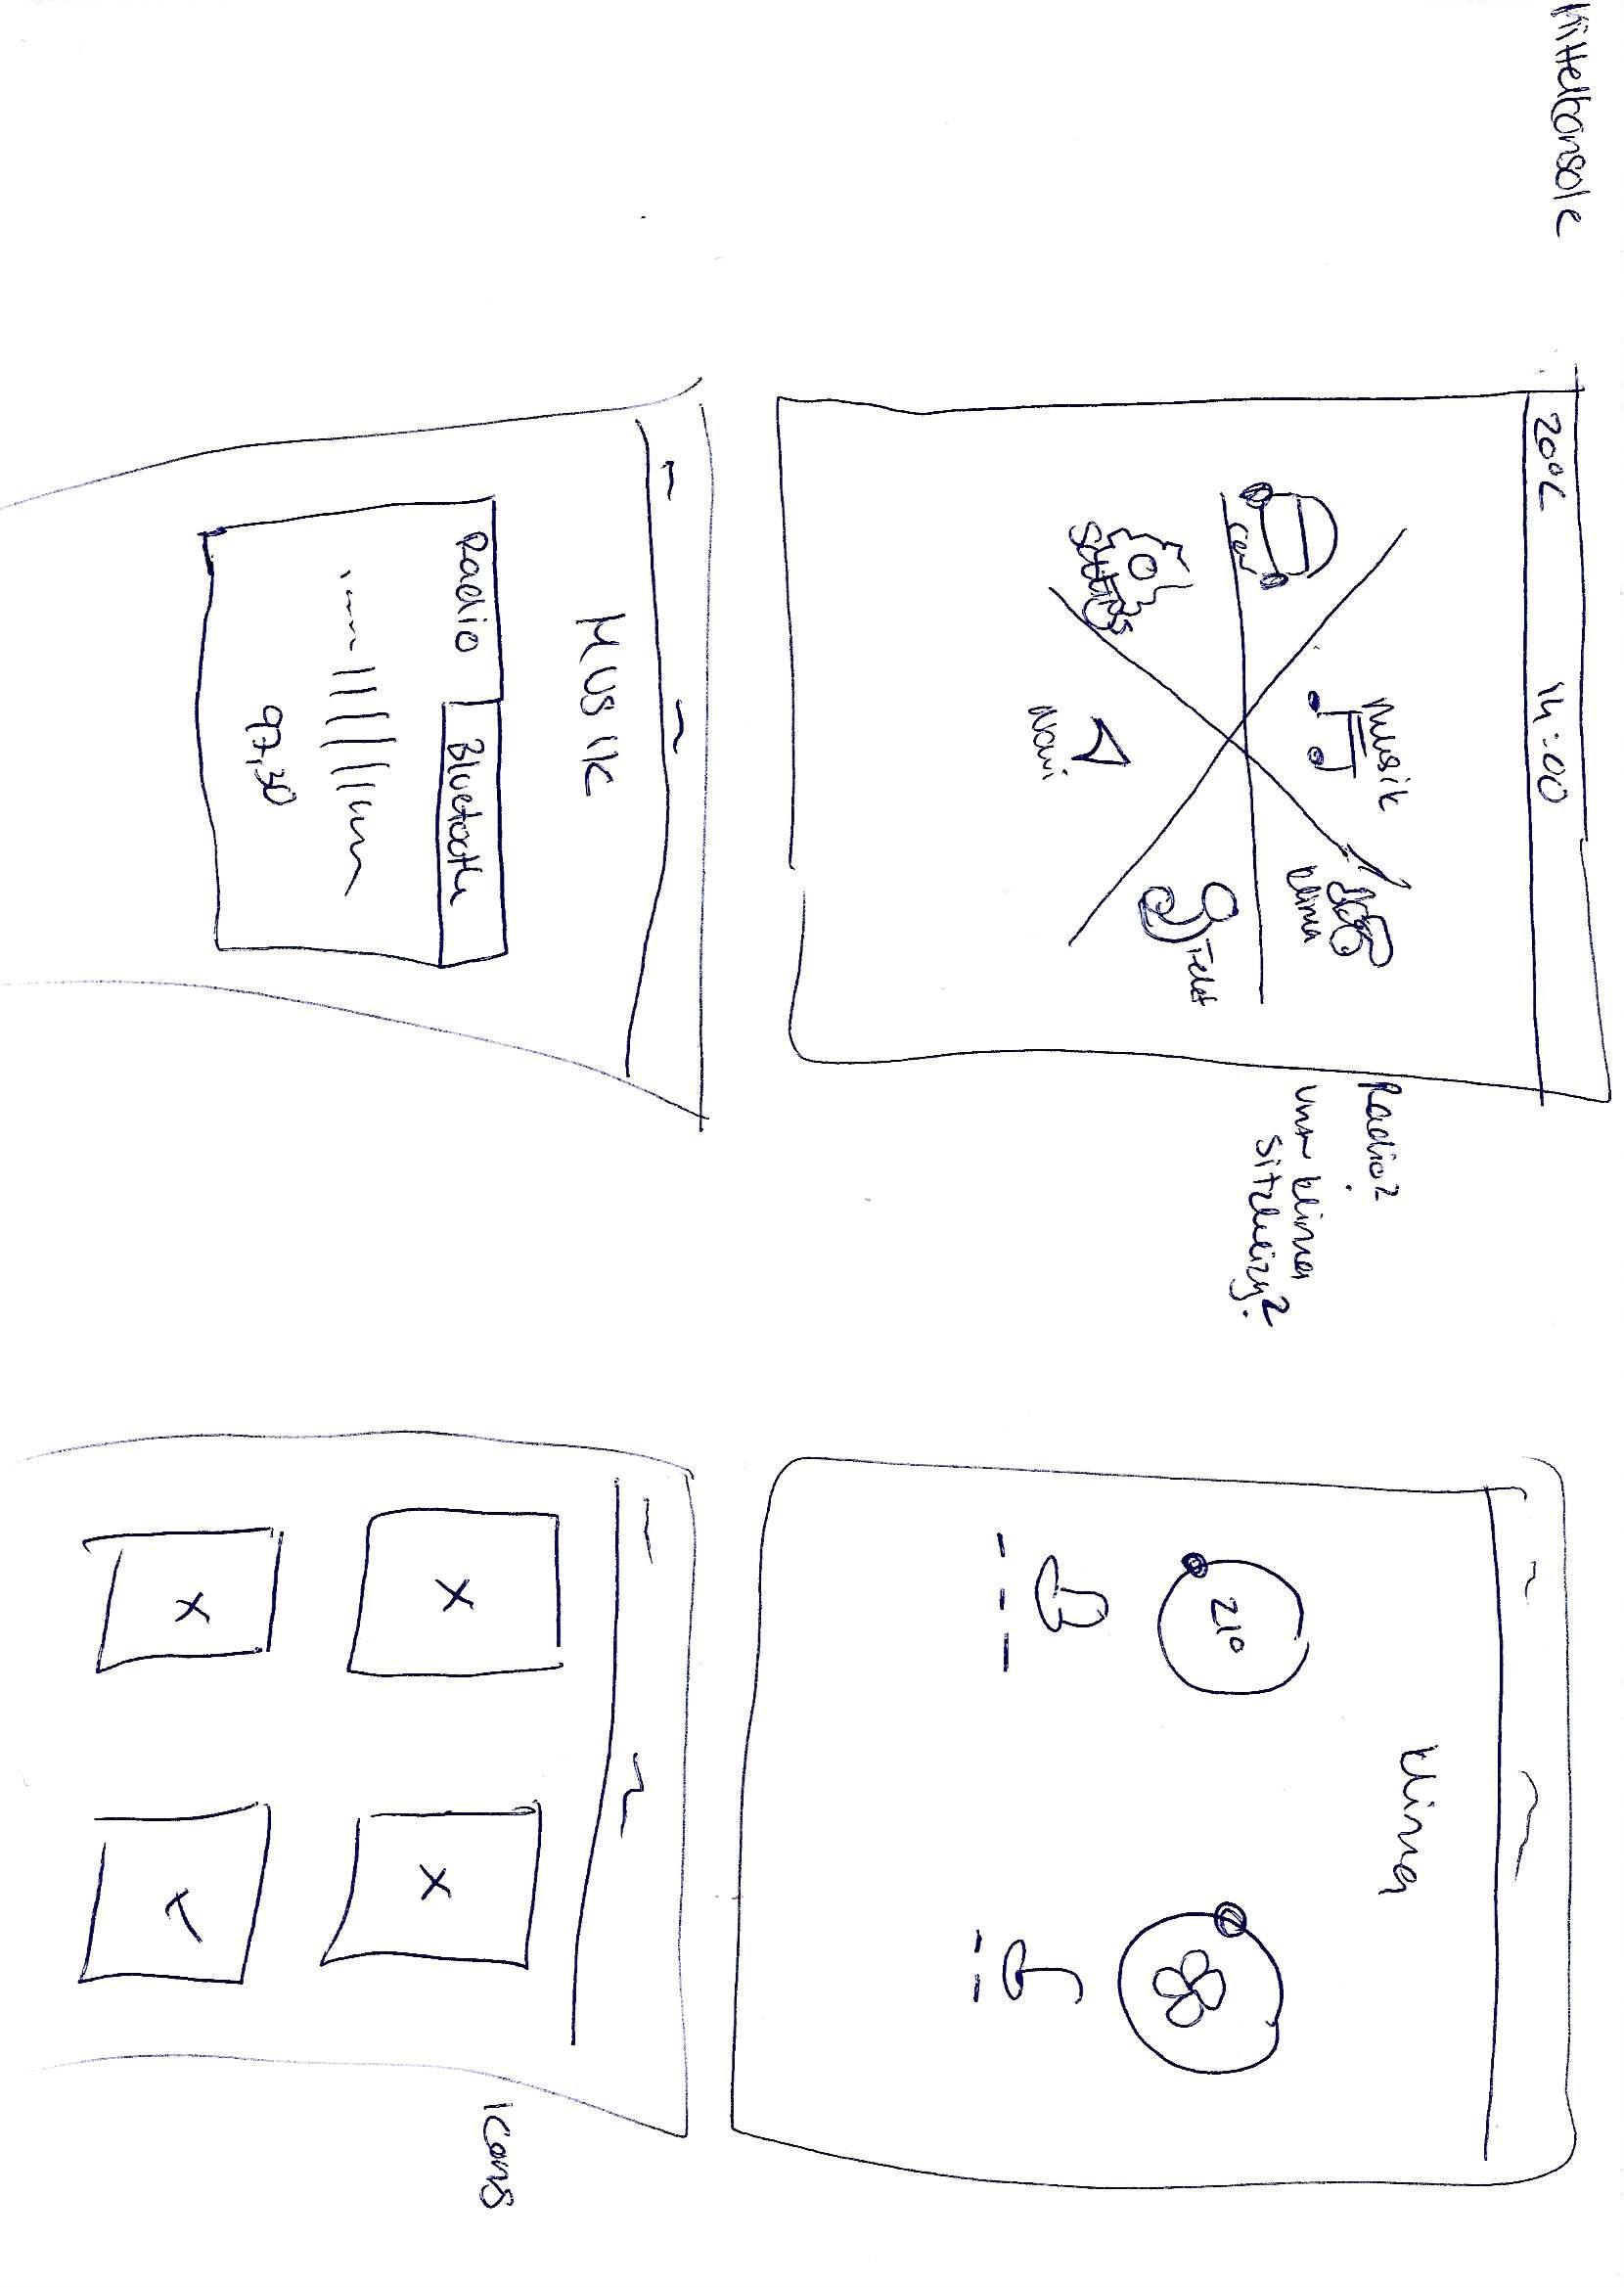 Mittelconsole
20°C 14:00
Musik
Klima
car
Telef
Settings
Navi
Radio?
Klima
Sitzheizg?
Klima
21°
MUSIK
Radio Bluetooth
97,30
Icons
X X
X ✓